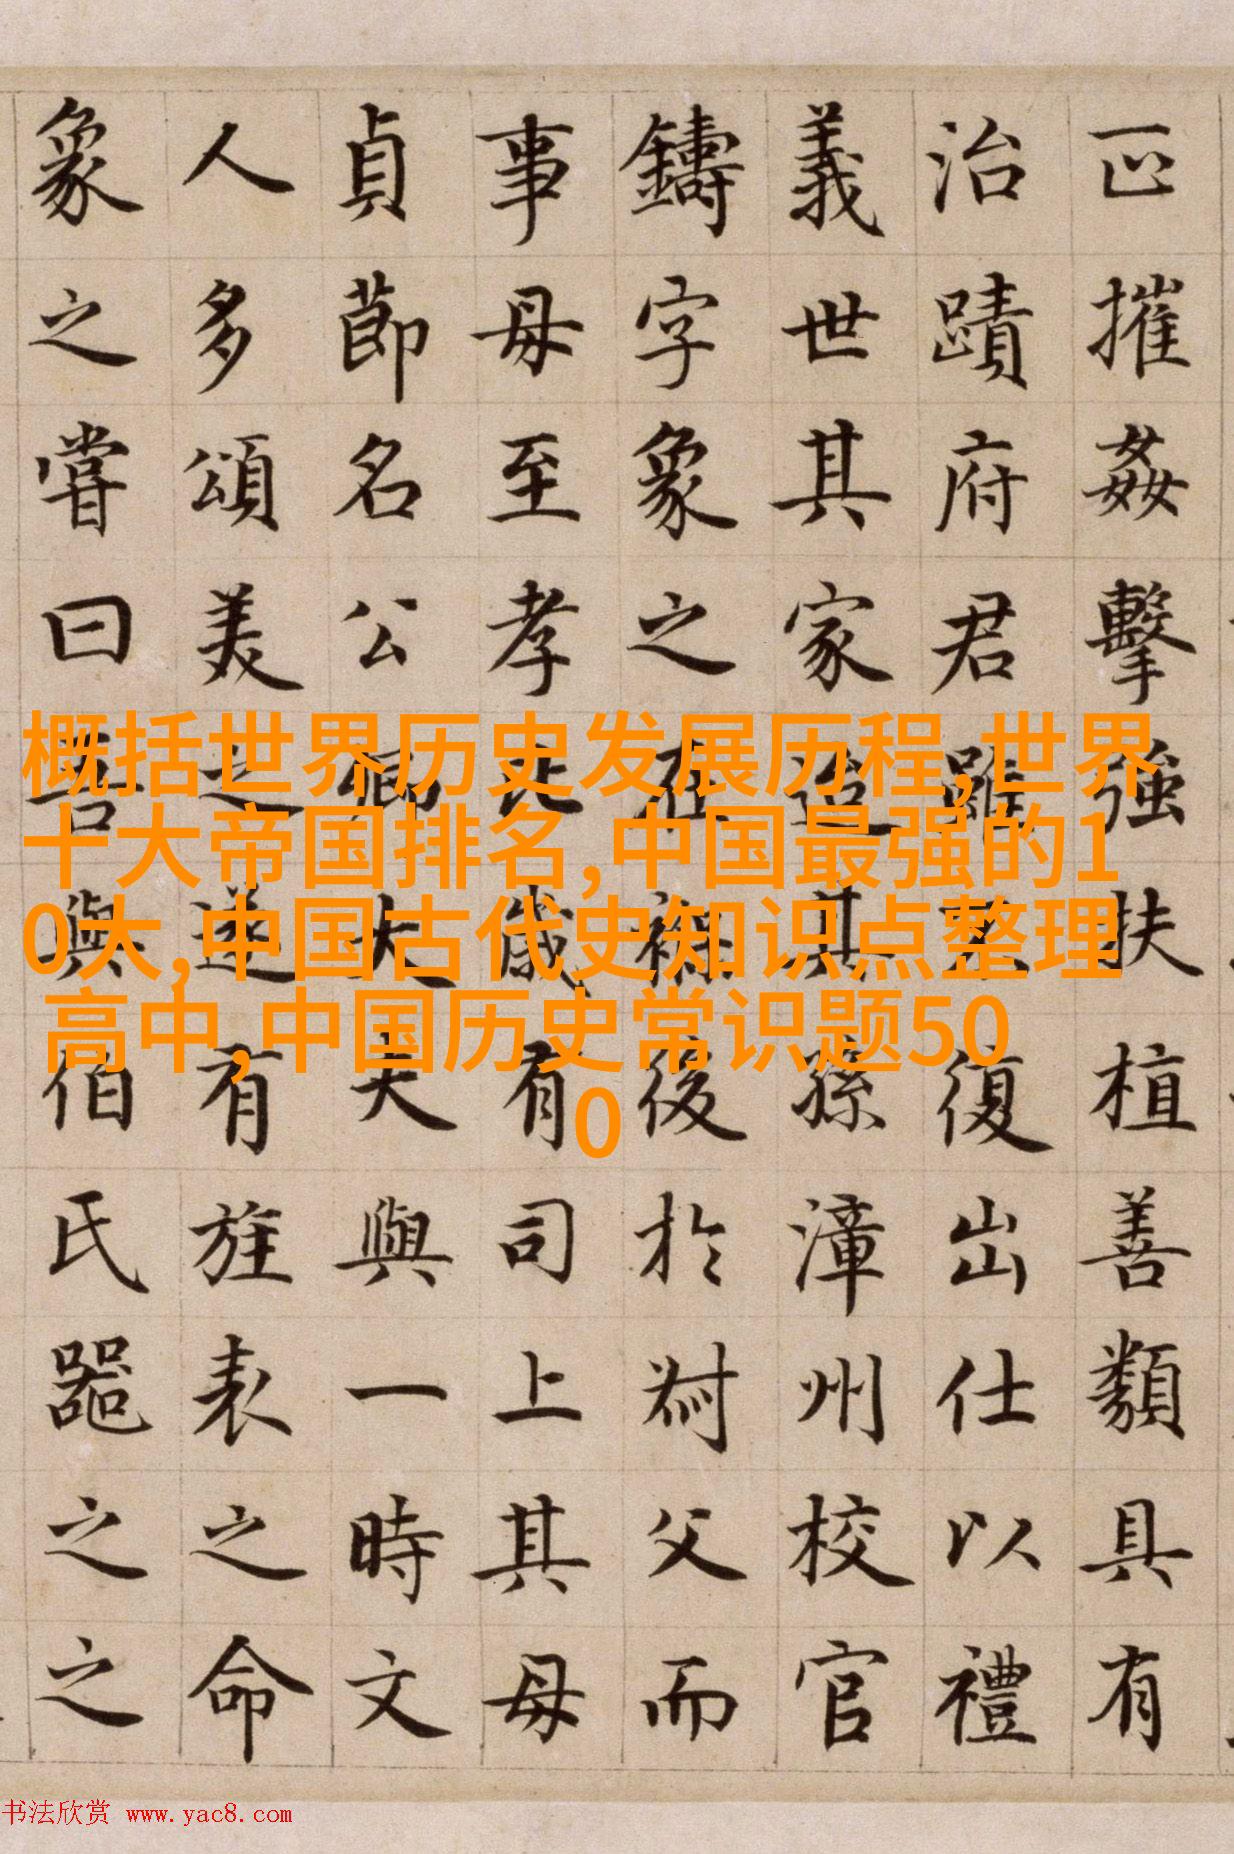 摧姦擊強扶植善類具有
治蹟府君雖復出仕以禮
義世其家迨其孫漳州校官
鑄字象之在後於父而
事母至孝比歲有司上其母
貞節名公卿大夫與一時文
人多頌美之遂有旌表之命
象之嘗曰吾與伯氏器之之
概括世界历史发展历程,世界
十大帝国排名,中国最强的1
0大,中国古代史知识点整理
高中,中国历史常识题50
0
书法欣赏 www.yac8.com